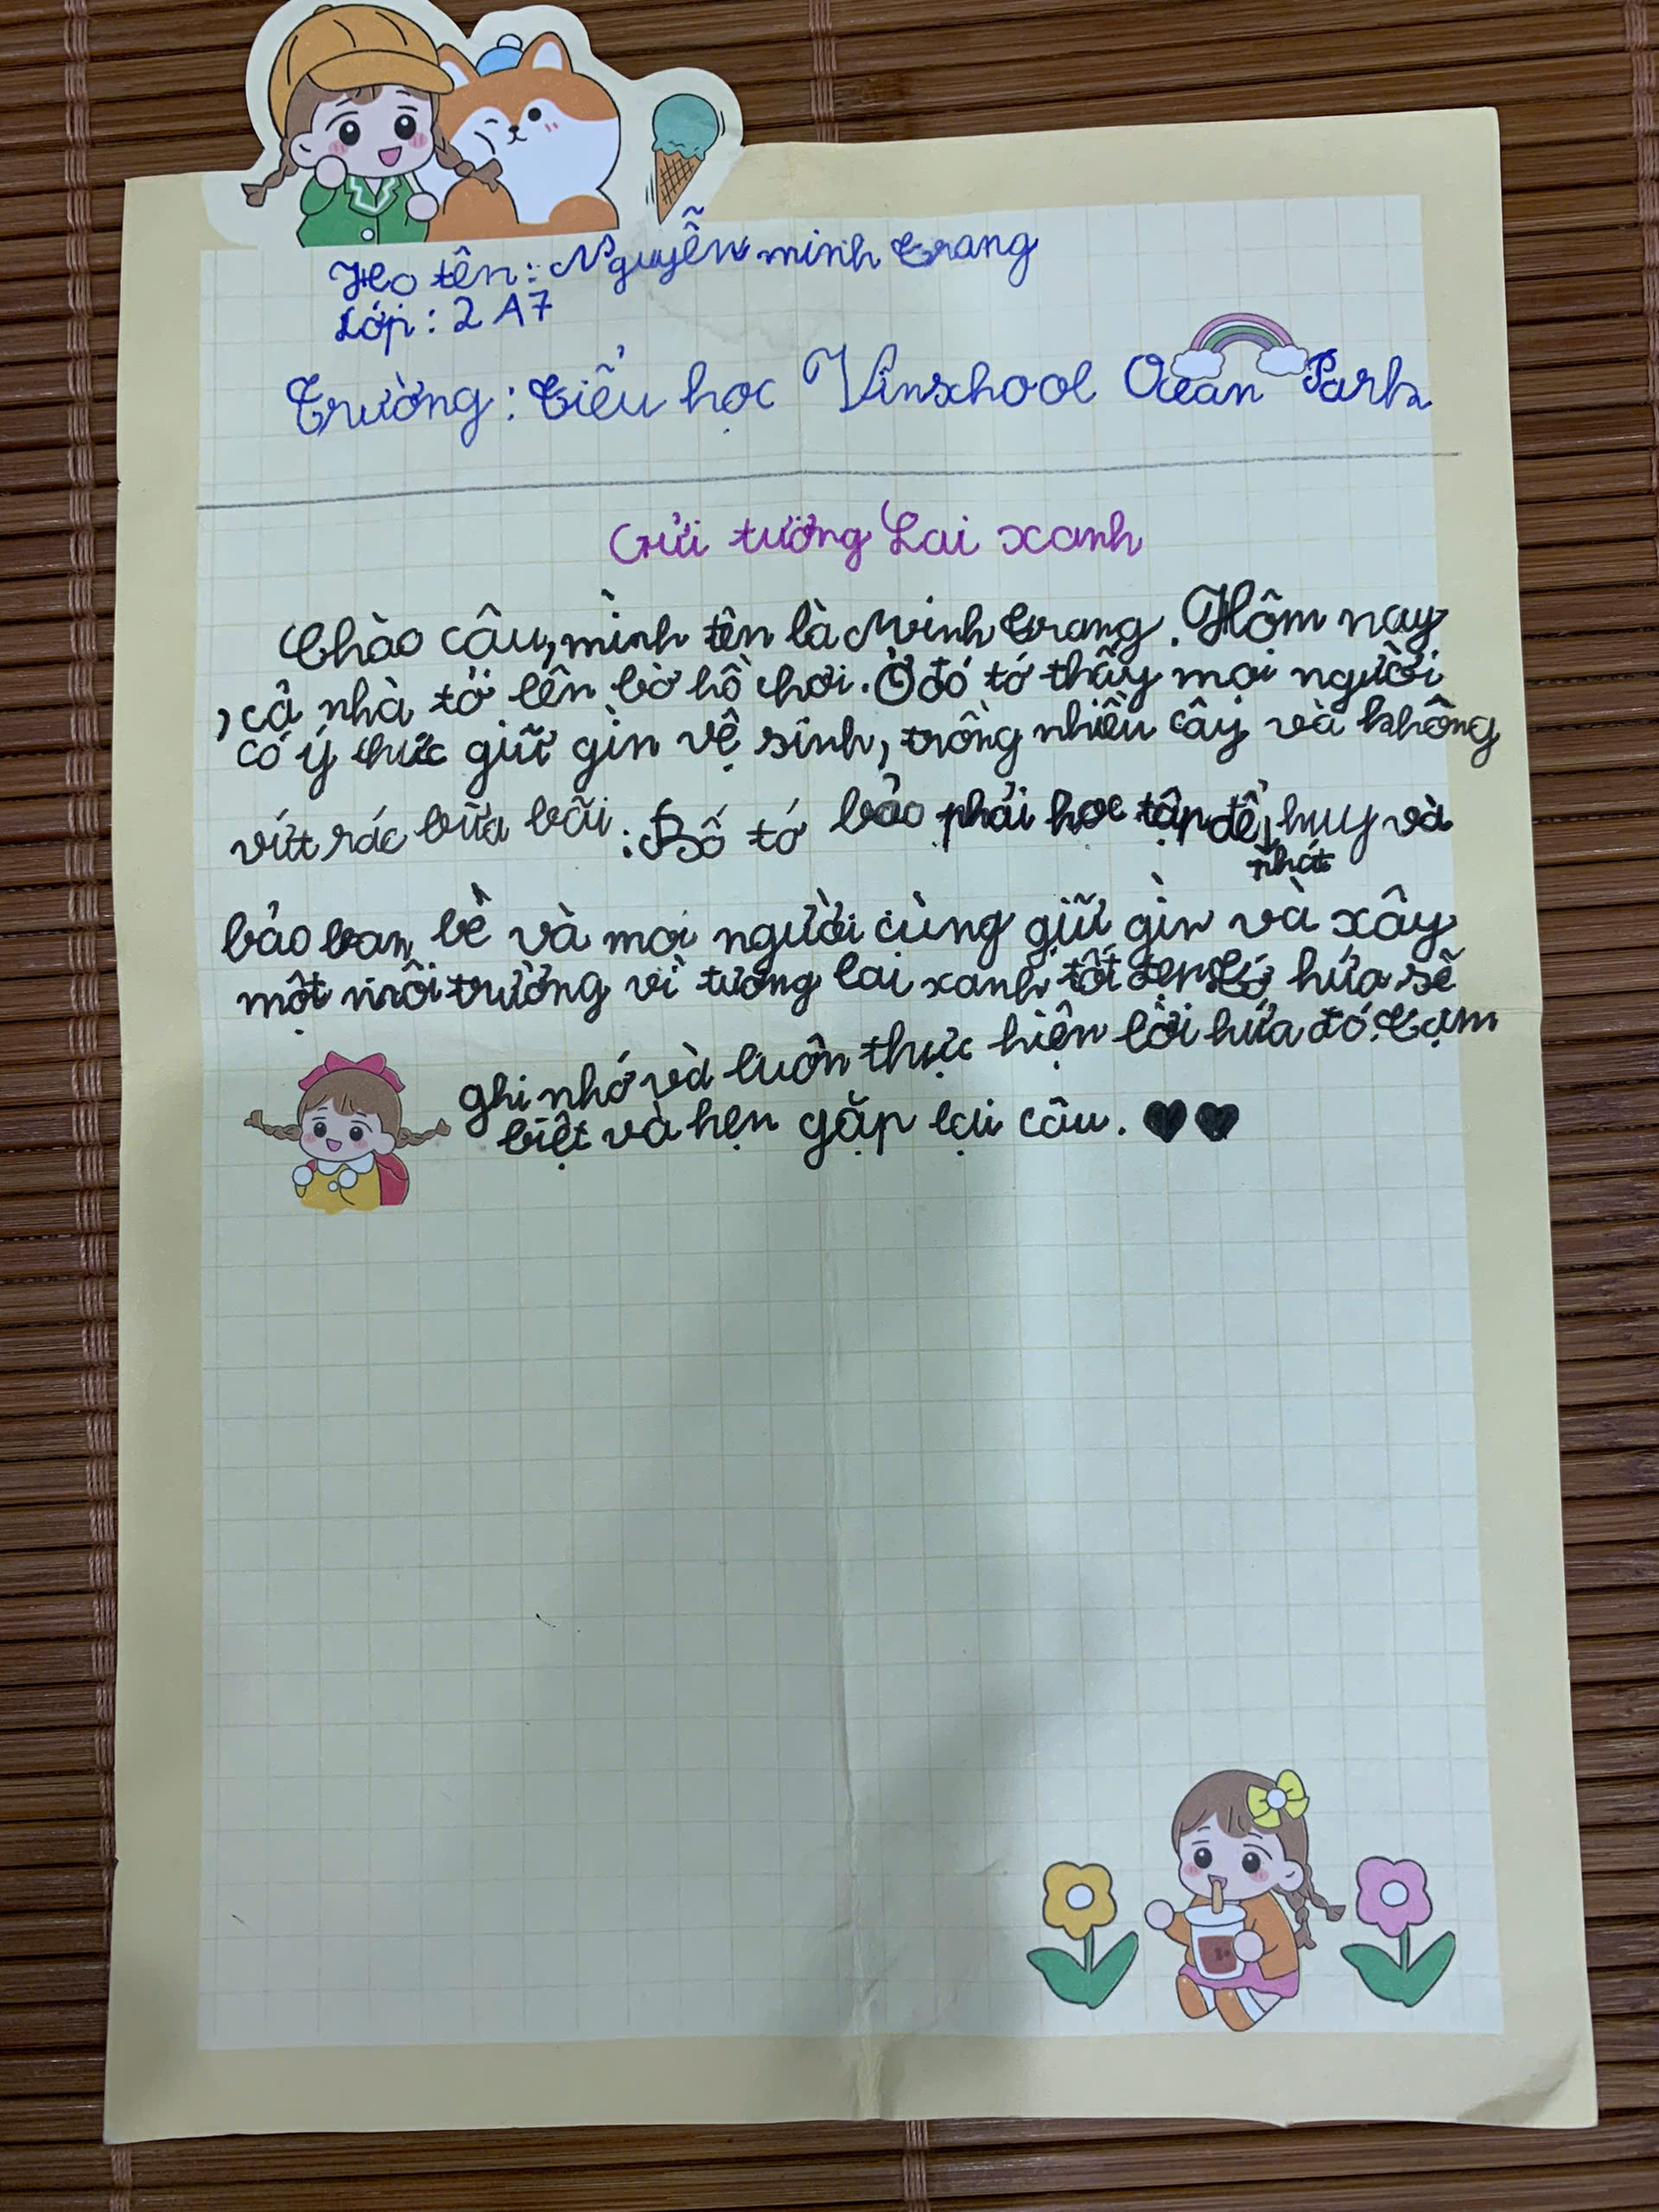 Họ tên: Nguyễn minh trang
Lớp: 2 A7
Trường: tiểu học Vinschool Ocean Park
Gửi tương Lai xanh
Chào câu, mình tên là Minh trang. Hôm nay
, cả nhà tớ lên bờ hồ chơi. Ở đó tớ thấy mọi người
có ý thức giữ gìn vệ sinh, trồng nhiều cây và không
vứt rác bừa bãi. Bố tớ bảo phải học tập để huy và
phát
bảo bạn bè và mọi người cùng giữ gìn và xây
một môi trường vì tương lai xanh tốt đẹp. Tớ hứa sẽ
ghi nhớ và luôn thực hiện lời hứa đó. Tạm
biệt và hẹn gặp lại câu.